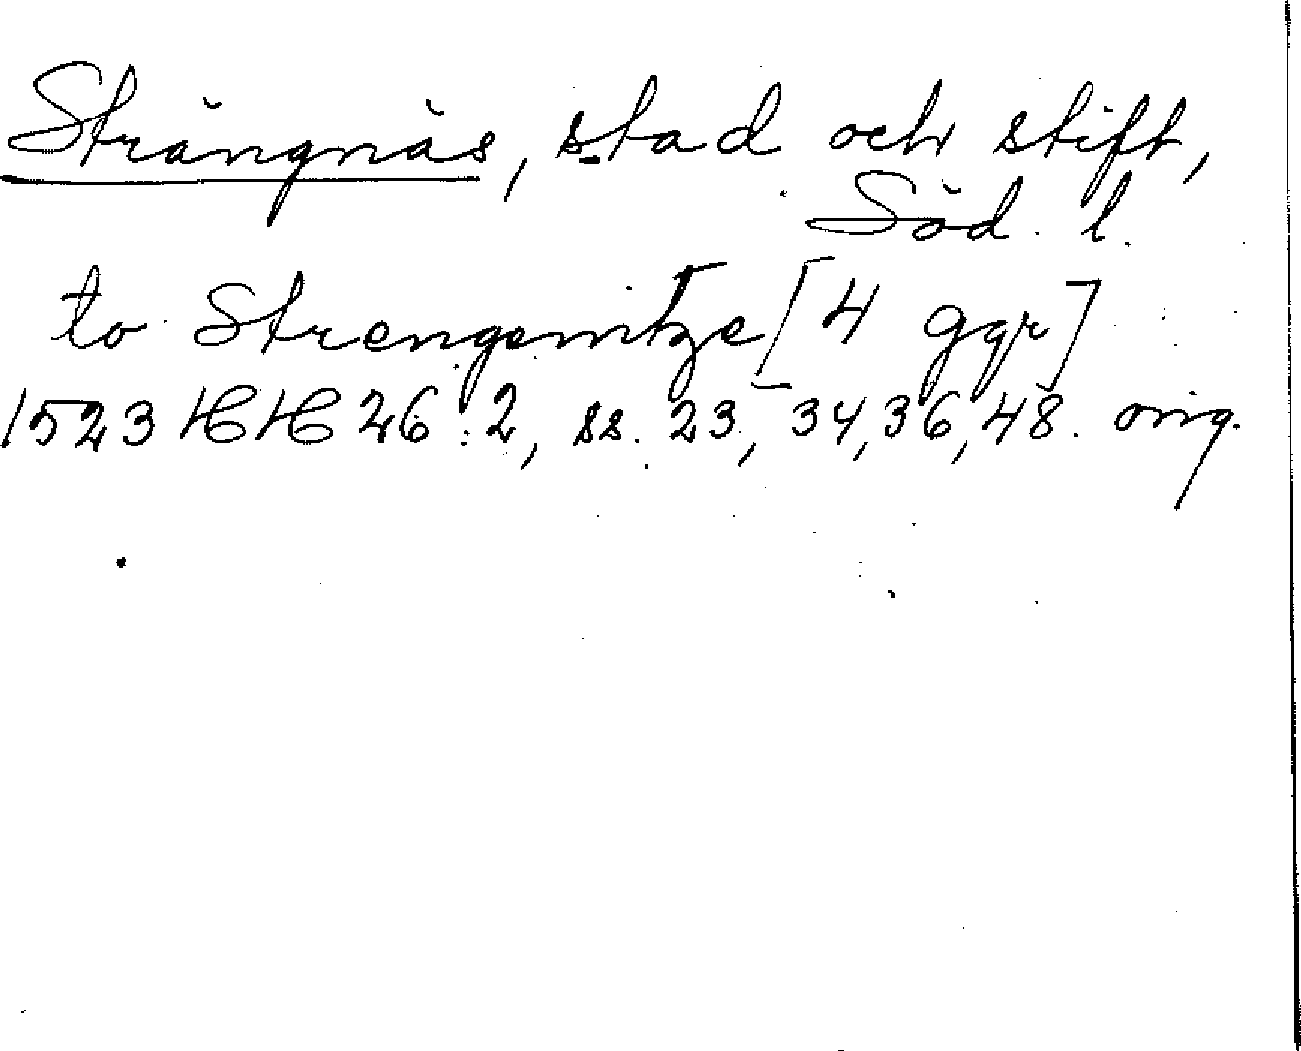 Strängnäs, stad och stift,
Söd. l.
to Strengemtze [4 ggr]
1523 HH 26:2, ss. 23, 34, 36, 48. orig.